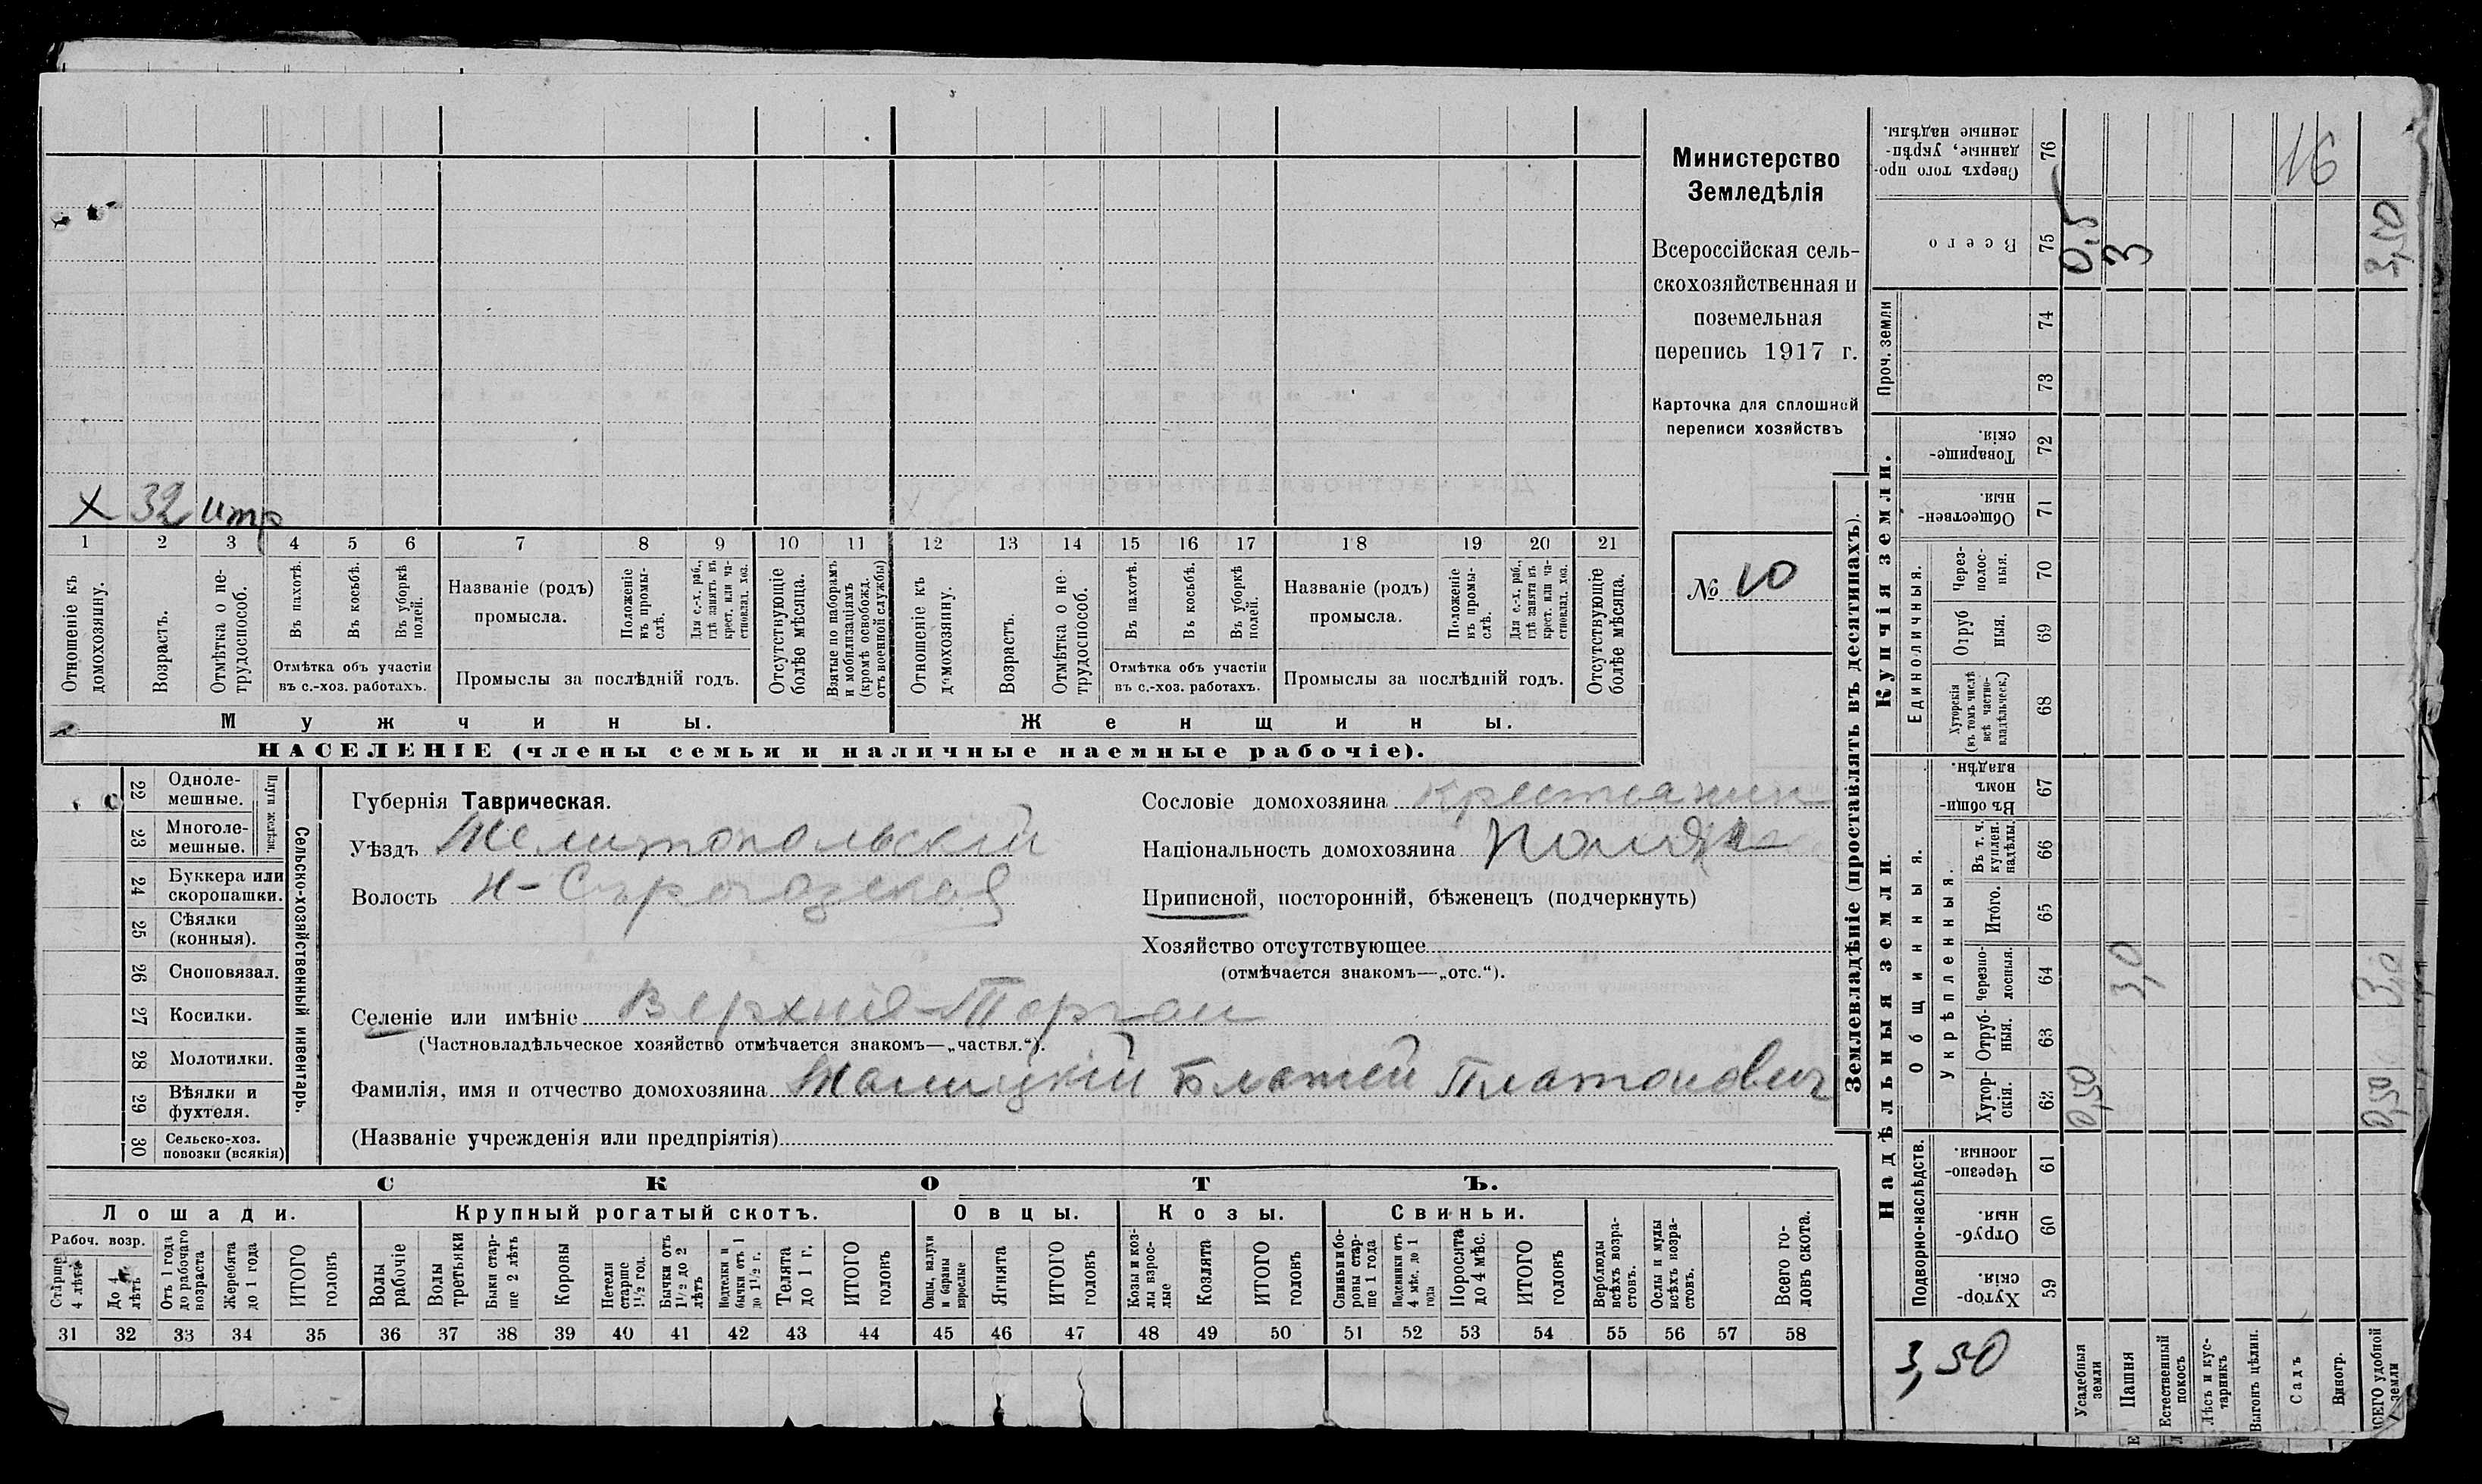 Министерство
Земледѣлія
Всероссійская сель-
скохозяйственная и
поземельная
перепись 1917 г.
Карточка для сплошной
переписи хозяйствъ
№ 10
Х 32 итр
1 2 3 4 5 6 7 8 9 10 11 12 13 14 15 16 17 18 19 20 21
Отношеніе къ домохозяину.
Возрастъ.
Отмѣтка о не-трудоспособ.
Въ пахотѣ.
Въ косьбѣ.
Въ уборкѣ полей.
Отмѣтка объ участіи
въ с.-хоз. работахъ.
Названіе (родъ)
промысла.
Положеніе въ промы-слѣ.
Для с.-х. раб., гдѣ занятъ въ крест. или ча-стновлад. хоз.
Промыслы за послѣдній годъ.
Отсутствующіе болѣе мѣсяца.
Взятые по наборамъ и мобилизаціямъ (кромѣ освобожд. отъ военной службы)
Отношеніе къ домохозяину.
Возрастъ.
Отмѣтка о не-трудоспособ.
Въ пахотѣ.
Въ косьбѣ.
Въ уборкѣ полей.
Отмѣтка объ участіи
въ с.-хоз. работахъ.
Названіе (родъ)
промысла.
Положеніе въ промы-слѣ.
Для с.-х. раб., гдѣ занята въ крест. или ча-стновлад. хоз.
Промыслы за послѣдній годъ.
Отсутствующіе болѣе мѣсяца.
Мужчины.
Женщины.
НАСЕЛЕНІЕ (члены семьи и наличные наемные рабочіе).
22 Одноле-мешные.
23 Многоле-мешные.
Плуги желѣзн.
24 Буккера или скоропашки.
25 Сѣялки (конныя).
26 Сноповязал.
27 Косилки.
28 Молотилки.
29 Вѣялки и фухтеля.
30 Сельско-хоз. повозки (всякія)
Сельско-хозяйственный инвентарь.
Губернія Таврическая.
Уѣздъ Мелитопольскій
Волость Н-Сѣрогозская
Селеніе или имѣніе Верхніе-Торгаи
(Частновладѣльческое хозяйство отмѣчается знакомъ—„частвл.“).
Фамилія, имя и отчество домохозяина Малицкій Блажей Платонович
(Названіе учрежденія или предпріятія)
Сословіе домохозяина крестьянин
Національность домохозяина Поляк
Приписной, посторонній, бѣженецъ (подчеркнуть)
Хозяйство отсутствующее
(отмѣчается знакомъ—„отс.“).
СКОТЪ.
Лошади.
Рабоч. возр.
Старше 4 лѣтъ
До 4 лѣтъ
Отъ 1 года до рабочаго возраста
Жеребята до 1 года
ИТОГО головъ
Крупный рогатый скотъ.
Волы рабочіе
Волы третьяки
Быки стар-ше 2 лѣтъ
Коровы
Нетели старше 1½ год.
Бычки отъ 1½ до 2 лѣтъ
Подтелки и бычки отъ 1 до 1½ г.
Телята до 1 г.
ИТОГО головъ
Овцы.
Овцы, валухи и бараны взрослые
Ягнята
ИТОГО головъ
Козы.
Козы и коз-лы взрос-лые
Козлята
ИТОГО головъ
Свиньи.
Свиньи и бо-ровы стар-ше 1 года
Подсвинки отъ 4 мѣс. до 1 года
Поросята до 4 мѣс.
ИТОГО головъ
Верблюды всѣхъ возра-стовъ.
Ослы и мулы всѣхъ возра-стовъ.
Всего го-ловъ скота.
31 32 33 34 35 36 37 38 39 40 41 42 43 44 45 46 47 48 49 50 51 52 53 54 55 56 57 58
Землевладѣніе (проставлять въ десятинахъ).
Сверхъ того про-данные, укрѣп-ленные надѣлы. 76
16
Всего 75 0,5 3 3,50
Проч. земли 74 73
Купчія земли.
Товарище-скія. 72
Обществен-ныя. 71
Единоличныя.
Через-полос-ныя. 70
Отруб ныя. 69
Хуторскія (въ томъ числѣ всѣ частно-владѣльческ.) 68
Надѣльныя земли.
Общинныя.
Въ общи-номъ владѣн. 67
Укрѣпленныя.
Въ т. ч. куплен. надѣлы. 66
Итого. 65
Черезпо-лосныя. 64 3,0 3,0
Отруб-ныя. 63
Хутор-скія. 62 0,50 0,50
Подворно-наслѣдств.
Черезпо-лосныя. 61
Отруб-ныя. 60
Хутор-скія. 59
3,50
Усадебныя земли
Пашня
Естественный покосъ
Лѣсъ и кус-тарникъ
Выгонъ цѣлин.
Садъ
Виногр.
ВСЕГО удобной земли